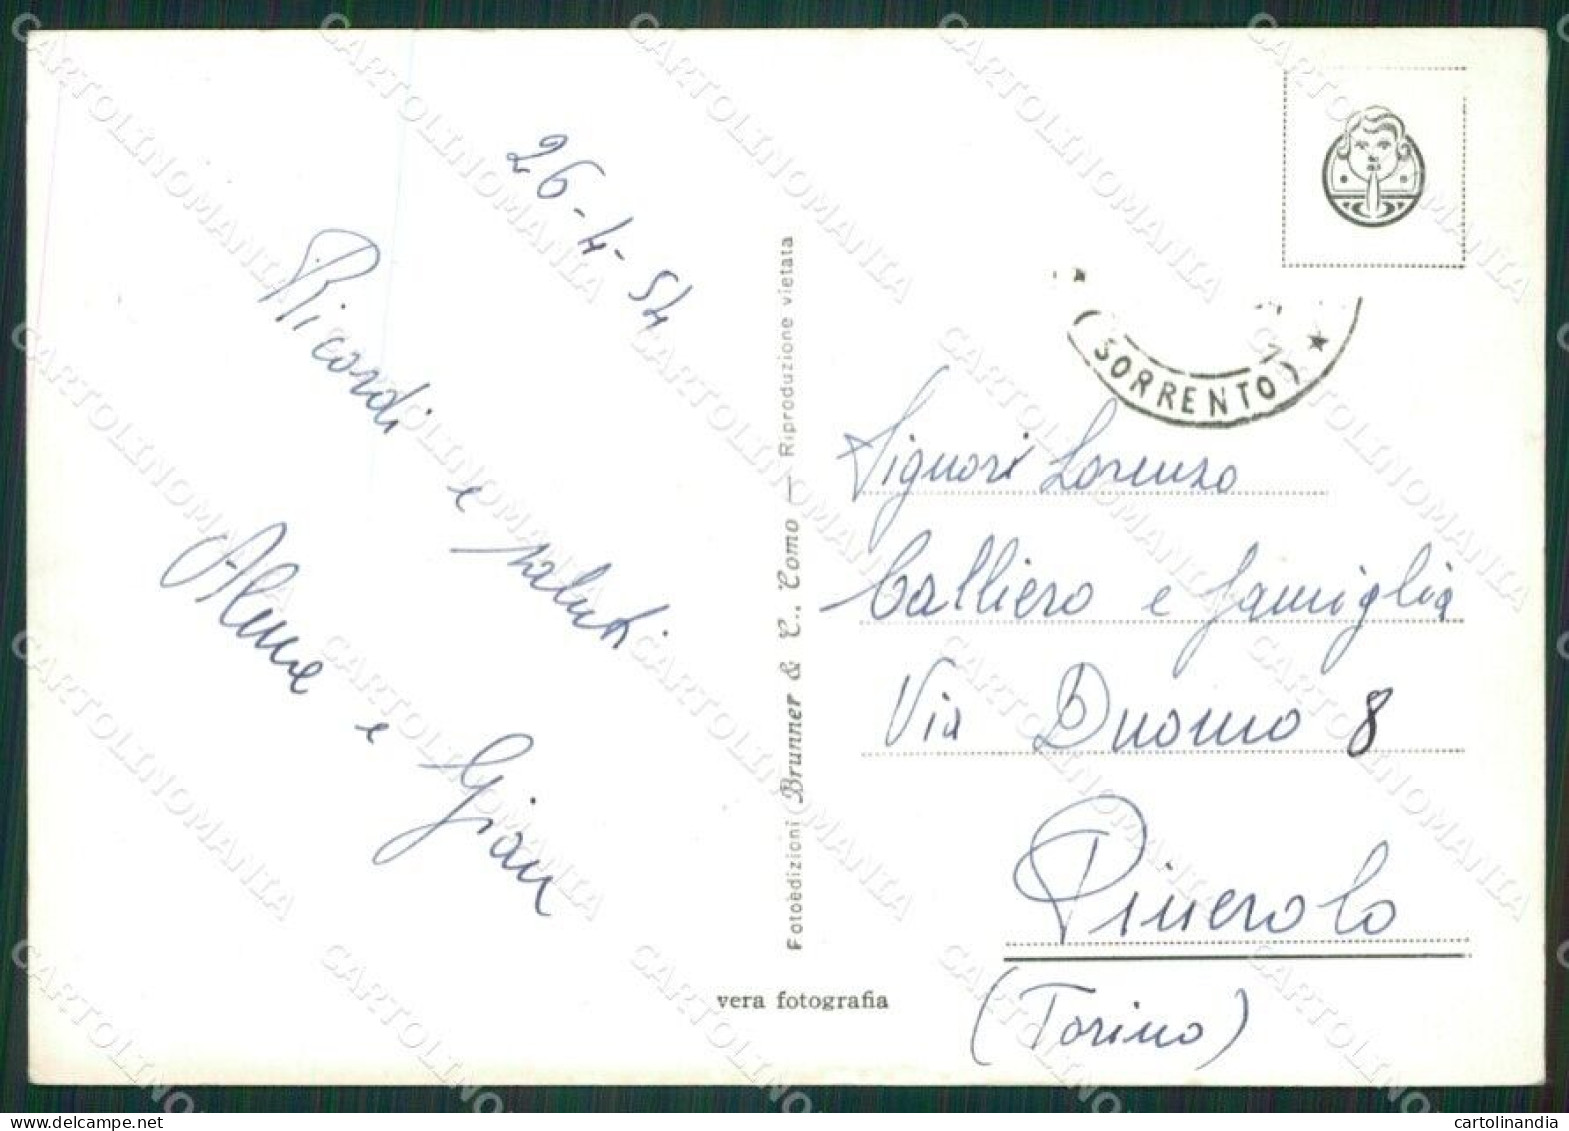 26-4-54
Ricordi e saluti
e Gian
Fotoedizioni Brunner & C., Como — Riproduzione vietata
vera fotografia
(SORRENTO)
Signori Lorenzo
Calliero e famiglia
Via Duomo 8
Pinerolo
(Torino)
CARTOLINOMANIA
cartolinandia